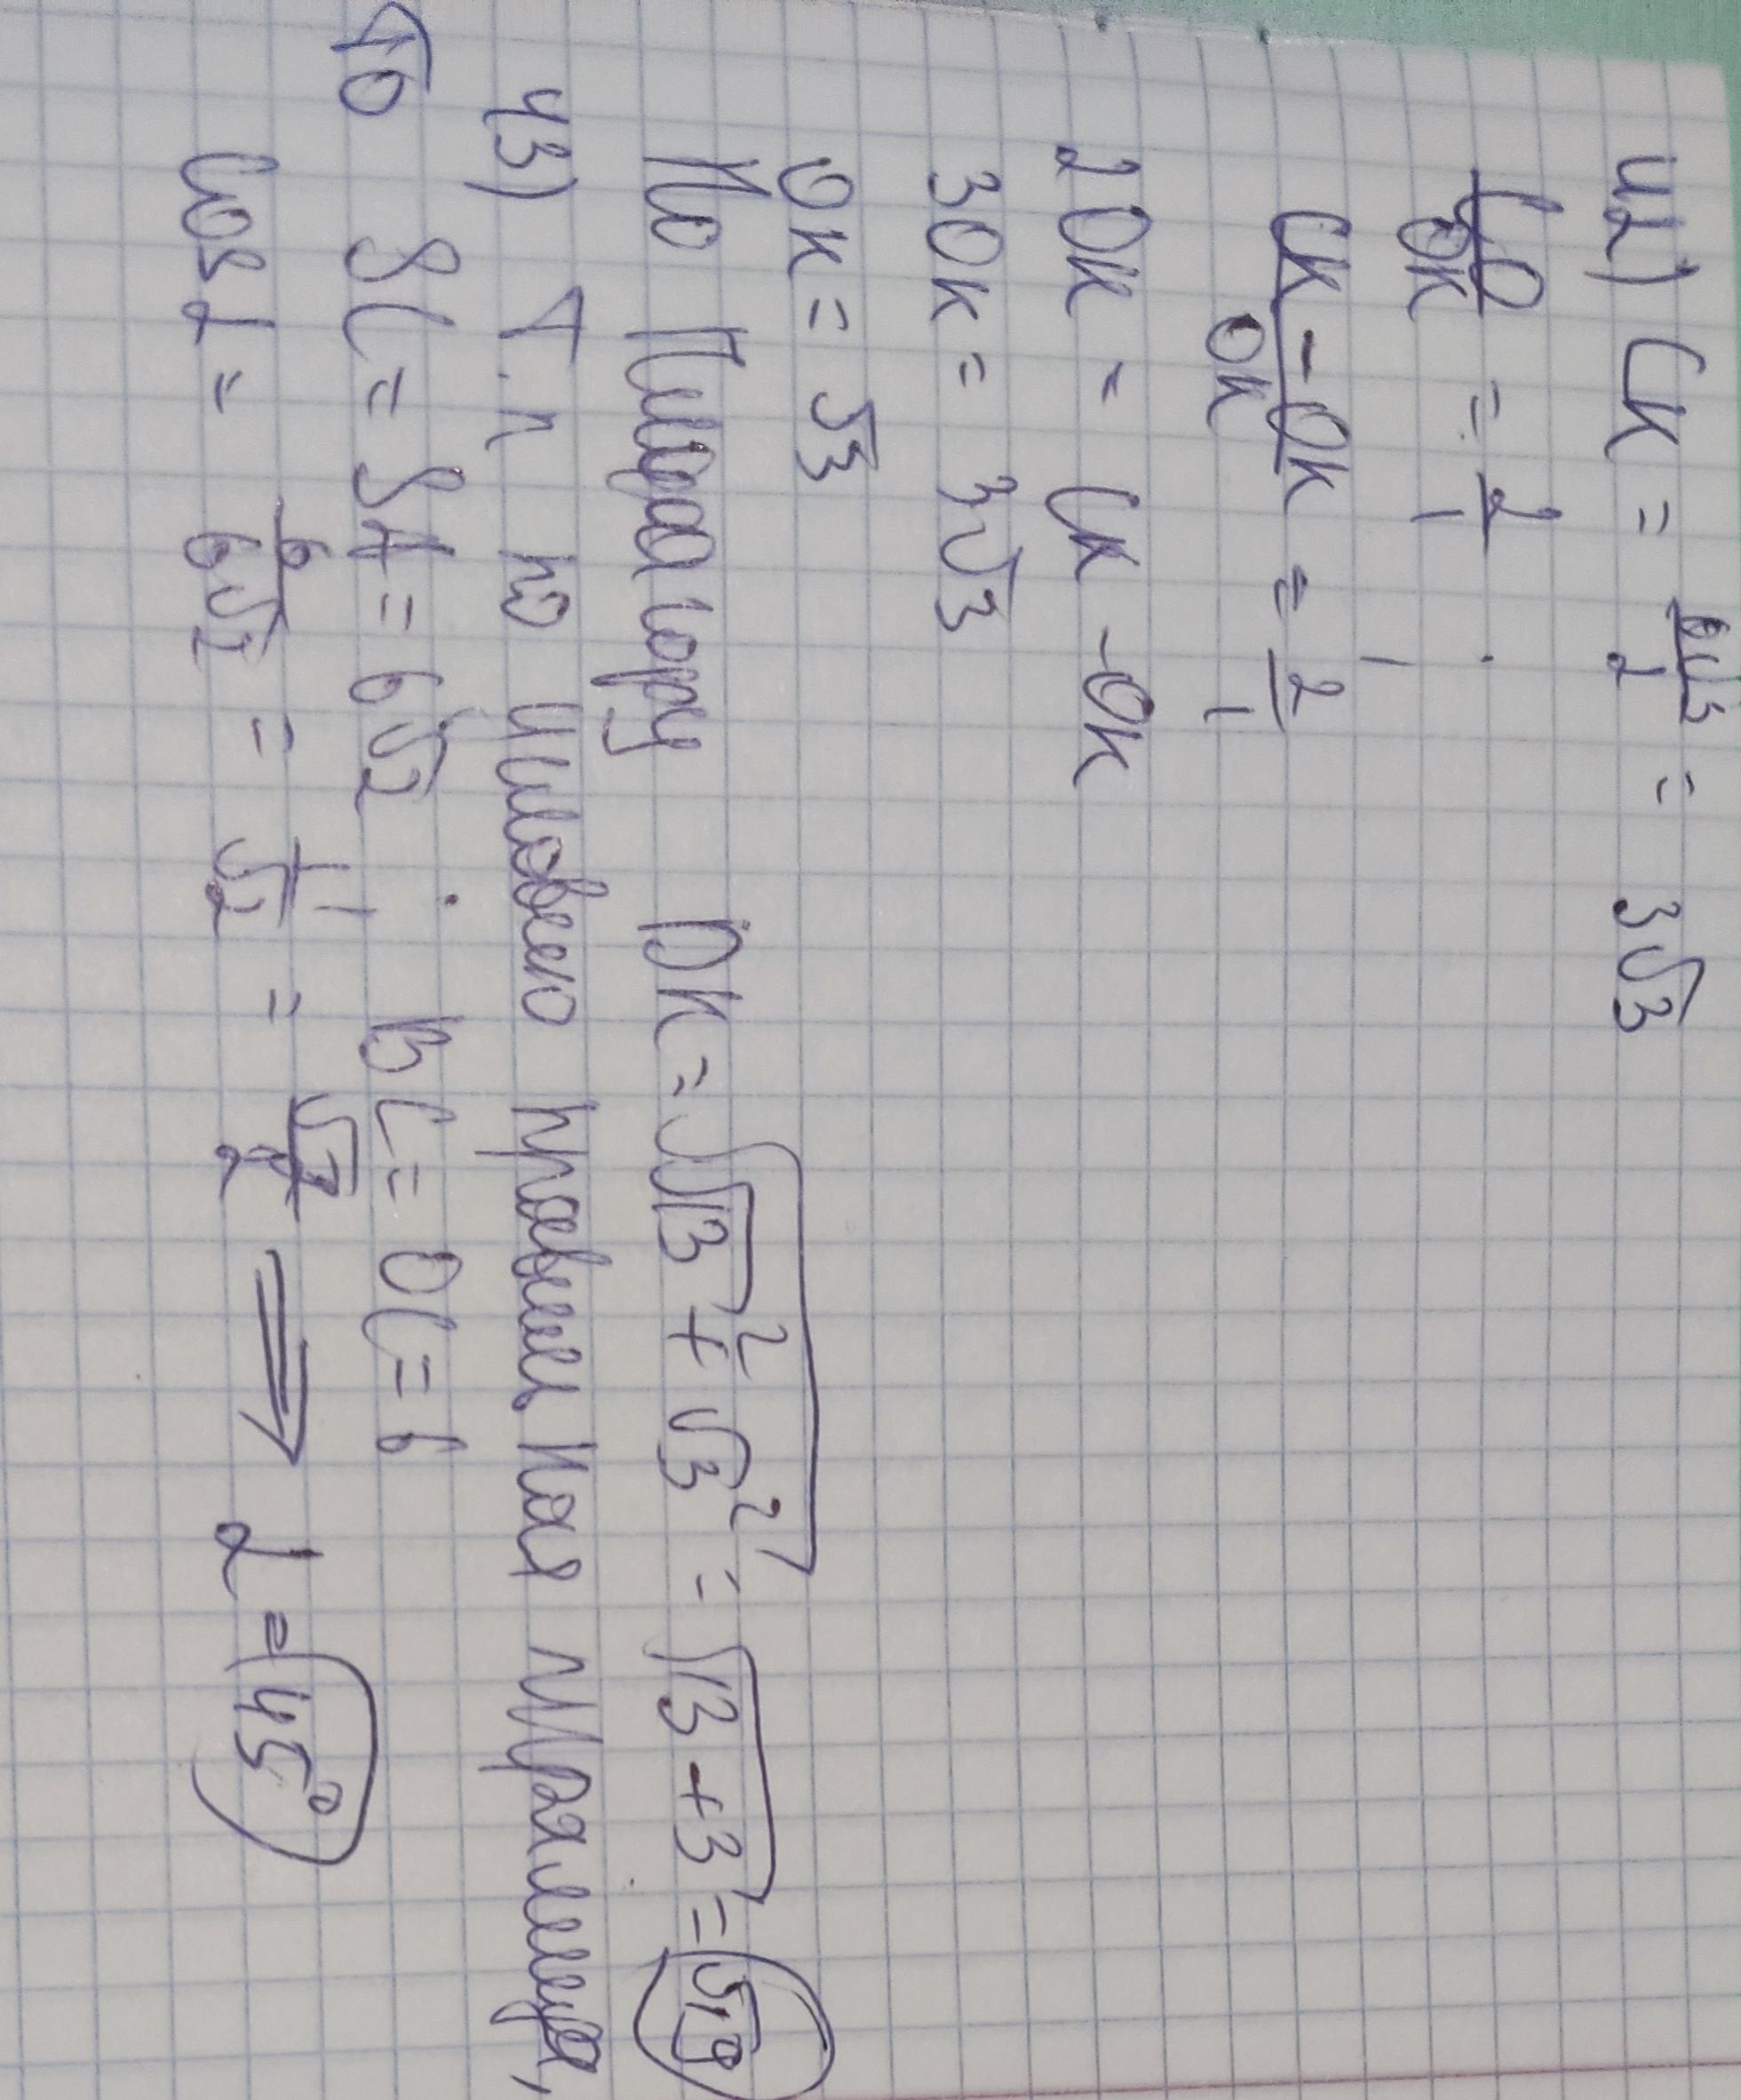 42) CK = 6√3/2 = 3√3
CO/OK = 2/1
CK-OK/OK = 2/1
2OK = CK-OK
3OK = 3√3
OK = √3
По Пифагору DK = √(√13² + √3²) = √(13+3) =
43) Т.к по условию правильная пирамида,
то SC = SA = 6√2 . BC = OC = 6
Cos α = 6/6√2 = 1/√2 = √2/2 ⟹ α = 45°